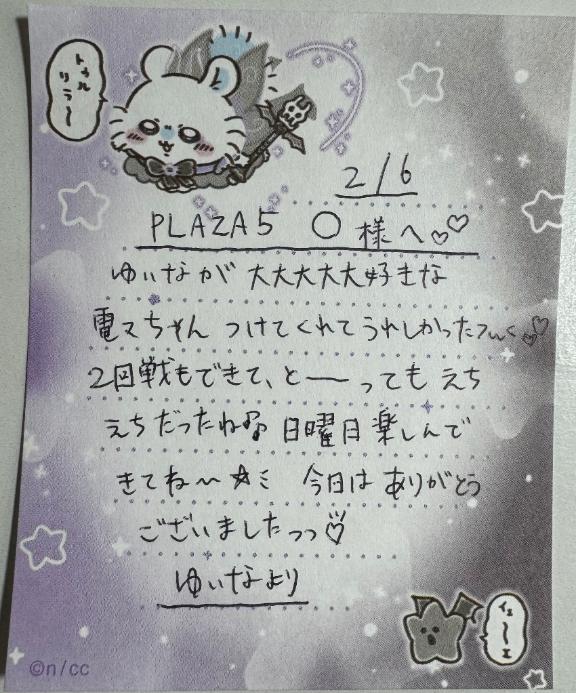 トゥル
リラ〜
2/6
PLAZA5 〇様へ♡♡
ゆいなが 大大大大大好きな
電マちゃん つけてくれてうれしかったつ
2回戦もできて、と――っても えち
えちだったね♪ 日曜日 楽しんで
きてね〜☆ミ 今日は ありがとう
ございましたっっ♡
ゆいなより
イェ〜ェ
©n/cc